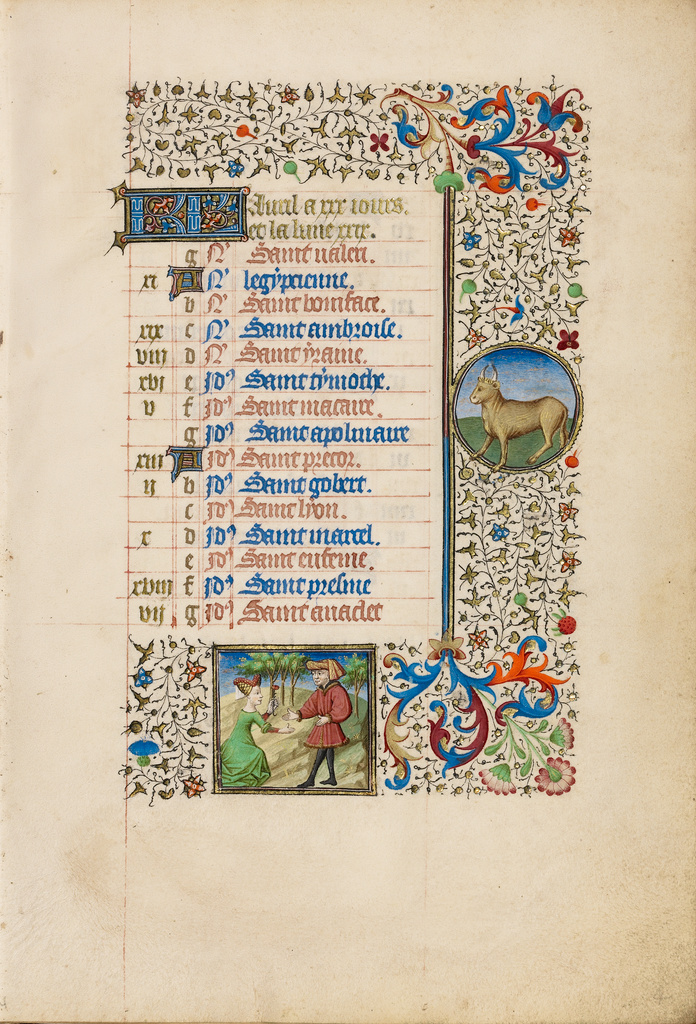 KL Auril a xxx iours.
et la lune xxix.
g N' Saint ualeri.
xi A N' legypcienne.
b N' Saint boniface.
xix c N' Saint ambroise.
viij d N' Saint yraine.
xvj e Id' Saint tymothe.
v f Id' Saint macaire.
g Id' Saint apolinaire
xiij A Id' Saint precor.
ij b Id' Saint gobert.
c Id' Saint lyon.
x d Id' Saint marcel.
e Id' Saint eufeme.
xviij f Id' Saint presme
vij g Id' Saint anaclet